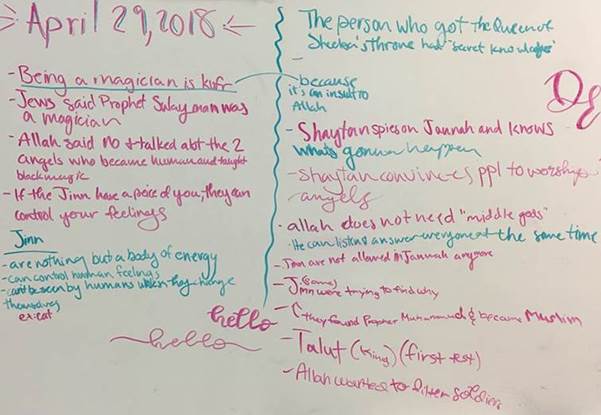 April 29, 2018
- Being a magician is kufr
- Jews said Prophet Sulayman was
a magician
- Allah said no & talked abt the 2
angels who became human and taught
black magic
- If the Jinn have a peice of you, they can
control your feelings
Jinn
- are nothing but a body of energy
- can control human feelings
- can't be seen by humans unless they change
themselves
ex: cat
hello
hello
The person who got the Queen of
Sheeba's throne had "secret knowledge"
-
because
it's an insult to
Allah
- Shaytan spies on Jannah and knows
whats gonna happen
- shaytan convinces ppl to worship
angels
- allah does not need "middle gods"
- He can listen & answer everyone at the same time
- Jinn are not allowed in Jannah anymore
- Jinn (some) were trying to find why
- they found Prophet Muhammad & became Muslim
- Talut (king) (first test)
- Allah wanted to filter soldiers